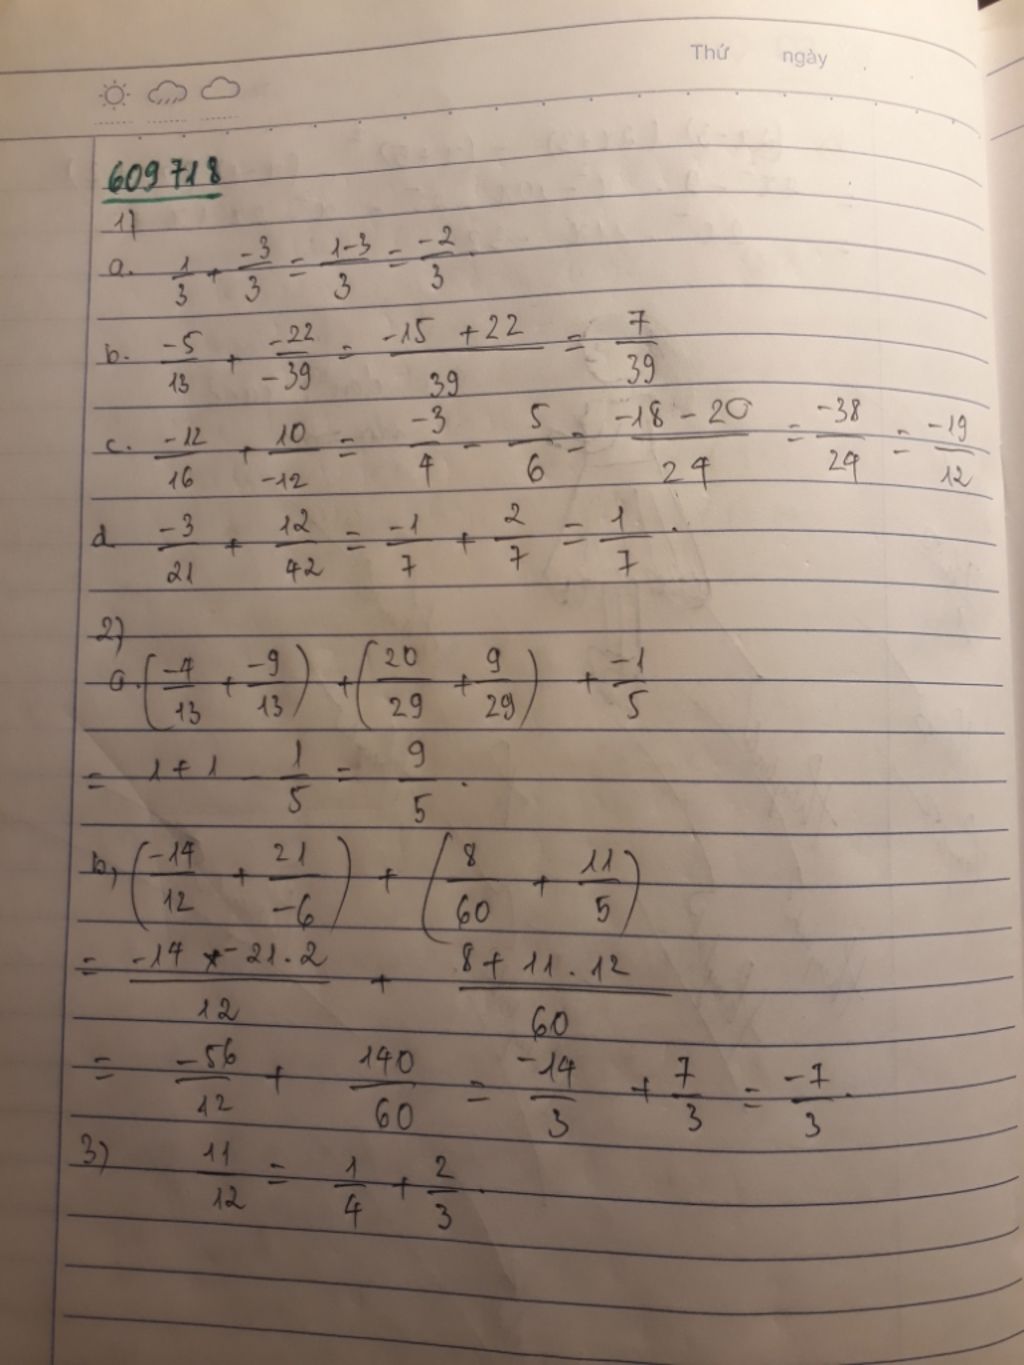 Thứ ngày
609718
1)
a. 1/3 + -3/3 = 1-3/3 = -2/3.
b. -5/13 + -22/-39 = -15 + 22/39 = 7/39
c. -12/16 + 10/-12 = -3/4 - 5/6 = -18 - 20/24 = -38/24 = -19/12
d -3/21 + 12/42 = -1/7 + 2/7 = 1/7.
2)
a. (-4/13 + -9/13) + (20/29 + 9/29) + -1/5
= 1 + 1 - 1/5 = 9/5.
b, (-14/12 + 21/-6) + (8/60 + 11/5)
= -14 - 21.2/12 + 8 + 11.12/60
= -56/12 + 140/60 = -14/3 + 7/3 = -7/3.
3) 11/12 = 1/4 + 2/3.